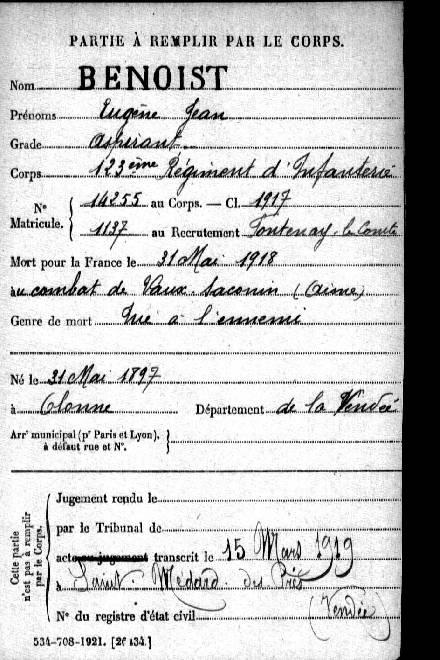 PARTIE À REMPLIR PAR LE CORPS.
Nom BENOIST
Prénoms Eugène Jean
Grade aspirant
Corps 123ème Régiment d'Infanterie
N° Matricule. { 14255 au Corps. — Cl. 1917
1137 au Recrutement Fontenay-le-Comte
Mort pour la France le 31 Mai 1918
au combat de Vaux-Saconin (Aisne)
Genre de mort Tué à l'ennemi
Né le 31 Mai 1897
à Olonne Département de la Vendée
Arrt municipal (pr Paris et Lyon), à défaut rue et N°. }
Cette partie n'est pas à remplir par le Corps.
Jugement rendu le
par le Tribunal de
acte ou jugement transcrit le 15 Mars 1919
à Saint-Médard-des-Prés
(Vendée)
N° du registre d'état civil
534-708-1921. [26434.]